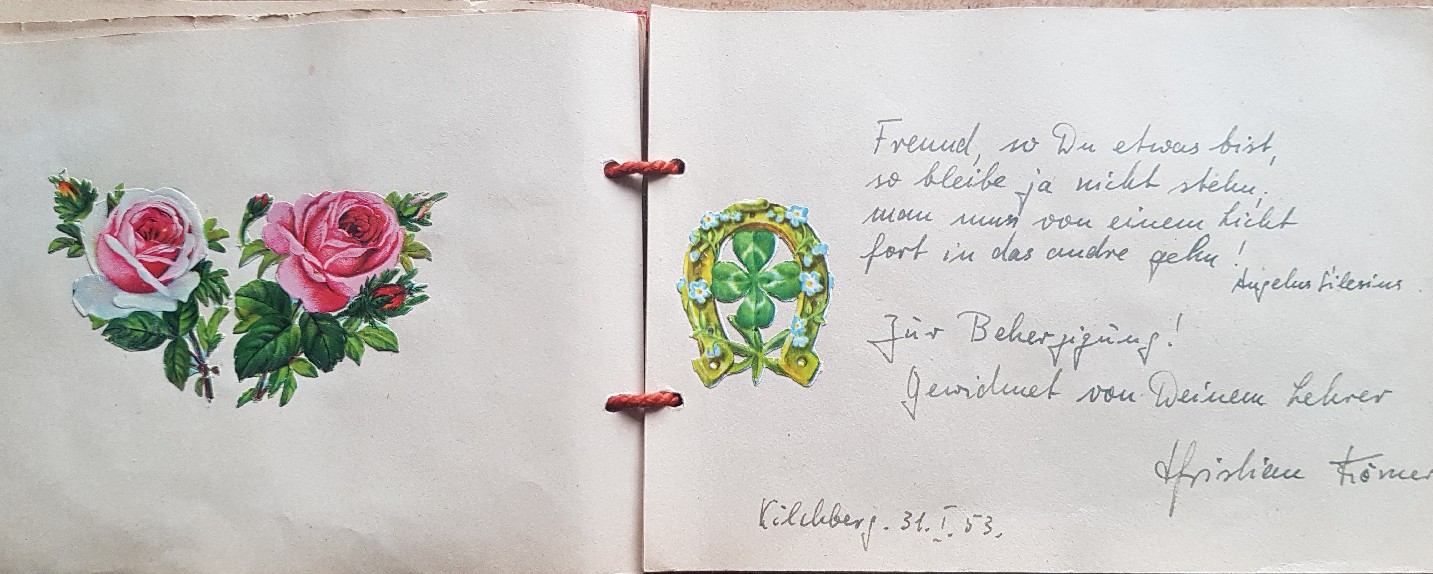 Freund, so Du etwas bist,
so bleibe ja nicht stehn,
man muß von einem Licht
fort in das andre gehn!
Angelus Silesius.
Zur Beherzigung!
Gewidmet von Deinem Lehrer
Christian Körner
Kilchberg. 31. I. 53.